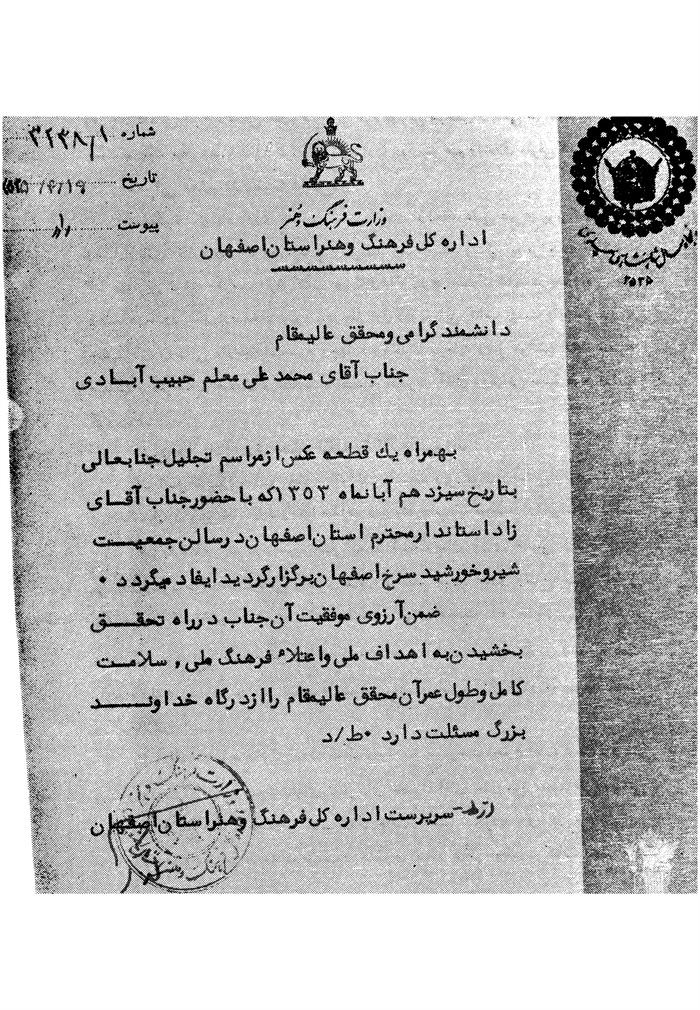 شماره ۳۲۳۸/۱
تاریخ
پیوست
وزارت فرهنگ و هنر
اداره کل فرهنگ وهنر استان اصفهان
شاهنشاهی پهلوی
۲۵۳۵
دانشمند گرامی ومحقق عالیمقام
جناب آقای محمد علی معلم حبیب آبادی
بهمراه یك قطعه عکس از مراسم تجلیل جنابعالی
بتاریخ سیزدهم آبانماه ۱۳۵۳ که با حضور جناب آقای
زاد استاندار محترم استان اصفهان در سالن جمعیت
شیر و خورشید سرخ اصفهان برگزار گردید ایفاد میگردد ۰
ضمن آرزوی موفقیت آن جناب در راه تحقق
بخشیدن به اهداف ملی و اعتلاء فرهنگ ملی , سلامت
کامل و طول عمر آن محقق عالیمقام را از درگاه خداوند
بزرگ مسئلت دارد ۰ ط/د
سرپرست اداره کل فرهنگ وهنر استان اصفهان